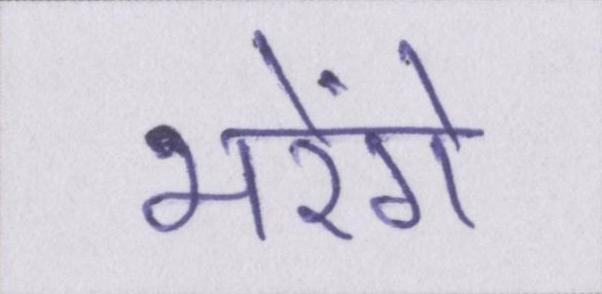 भरेंगे